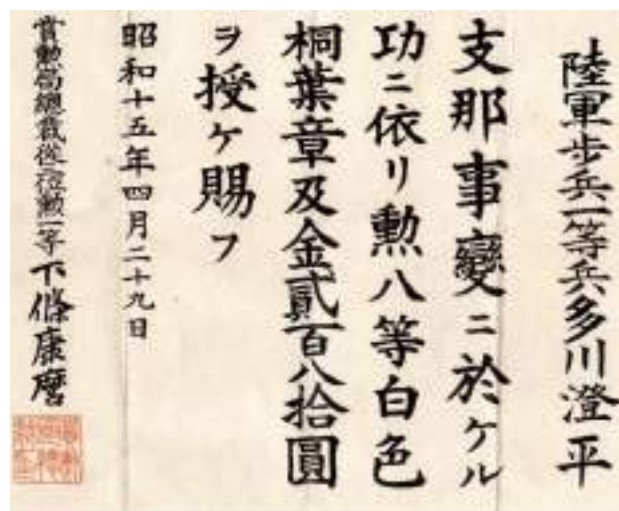 陸軍步兵一等兵多川澄平
支那事變ニ於ケル
功ニ依リ勲八等白色
桐葉章及金貳百八拾圓
ヲ授ケ賜フ
昭和十五年四月二十九日
賞勲局總裁從三位勲一等下條康麿